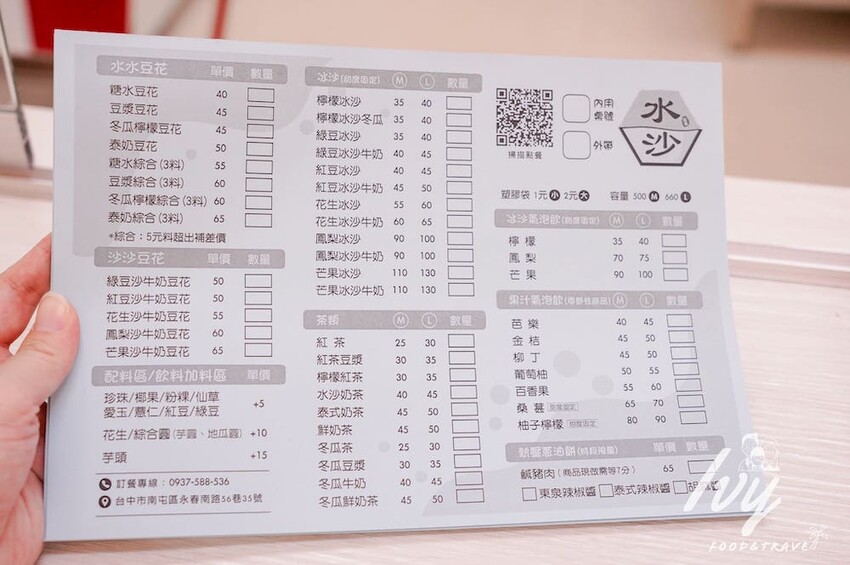 水水豆花 單價 數量
糖水豆花 40
豆漿豆花 45
冬瓜檸檬豆花 45
泰奶豆花 50
糖水綜合(3料) 55
豆漿綜合(3料) 60
冬瓜檸檬綜合(3料) 60
泰奶綜合(3料) 65
*綜合:5元料超出補差價
沙沙豆花 單價 數量
綠豆沙牛奶豆花 50
紅豆沙牛奶豆花 50
花生沙牛奶豆花 55
鳳梨沙牛奶豆花 60
芒果沙牛奶豆花 65
配料區/飲料加料區 單價
珍珠/椰果/粉粿/仙草
愛玉/薏仁/紅豆/綠豆 +5
花生/綜合圓(芋圓、地瓜圓) +10
芋頭 +15
訂餐專線:0937-588-536
台中市南屯區永春南路56巷35號
冰沙(甜度固定) M L 數量
檸檬冰沙 35 40
檸檬冰沙冬瓜 35 40
綠豆冰沙 35 40
綠豆冰沙牛奶 40 45
紅豆冰沙 40 45
紅豆冰沙牛奶 45 50
花生冰沙 55 60
花生冰沙牛奶 60 65
鳳梨冰沙 90 100
鳳梨冰沙牛奶 90 100
芒果冰沙 110 130
芒果冰沙牛奶 110 130
茶類 M L 數量
紅茶 25 30
紅茶豆漿 30 35
檸檬紅茶 30 35
水沙奶茶 40 45
泰式奶茶 45 50
鮮奶茶 45 50
冬瓜茶 25 30
冬瓜豆漿 30 35
冬瓜牛奶 40 45
冬瓜鮮奶茶 45 50
掃描點餐
內用
桌號
外帶
水沙
塑膠袋 1元小 2元大 容量 500 M 660 L
冰沙氣泡飲(甜度固定) M L 數量
檸檬 35 40
鳳梨 70 75
芒果 90 100
果汁氣泡飲(季節性商品) M L 數量
芭樂 40 45
金桔 45 50
柳丁 45 50
葡萄柚 50 55
百香果 55 60
桑葚 甜度固定 65 70
柚子檸檬 甜度固定 80 90
熱壓蔥油餅(時段限量) 單價 數量
鹹豬肉(商品現做需等7分) 65
東泉辣椒醬 泰式辣椒醬
Ivy
FOOD&TRAVEL